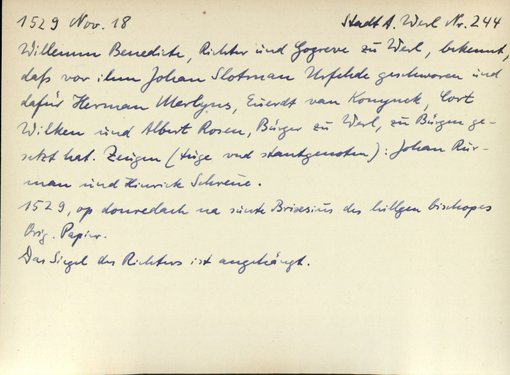 1529 Nov. 18 Stadt A. Werl Nr. 244
Willemm Benedicte, Richter und Gogreve zu Werl, bekennt,
daß vor ihm Johan Slotman Urfehde geschworen und
dafür Herman Merlyns, Everdt van Konynck, Cort
Wilken und Albert Rosen, Bürger zu Werl, zu Bürgen ge-
setzt hat. Zeugen (tuge vnd stantgenoten): Johan Rur-
man und Hinrick Schreue.
1529, op donredach na sunte Brixsius des hillgen bischopes
Orig. Papier.
Das Siegel des Richters ist angehängt.